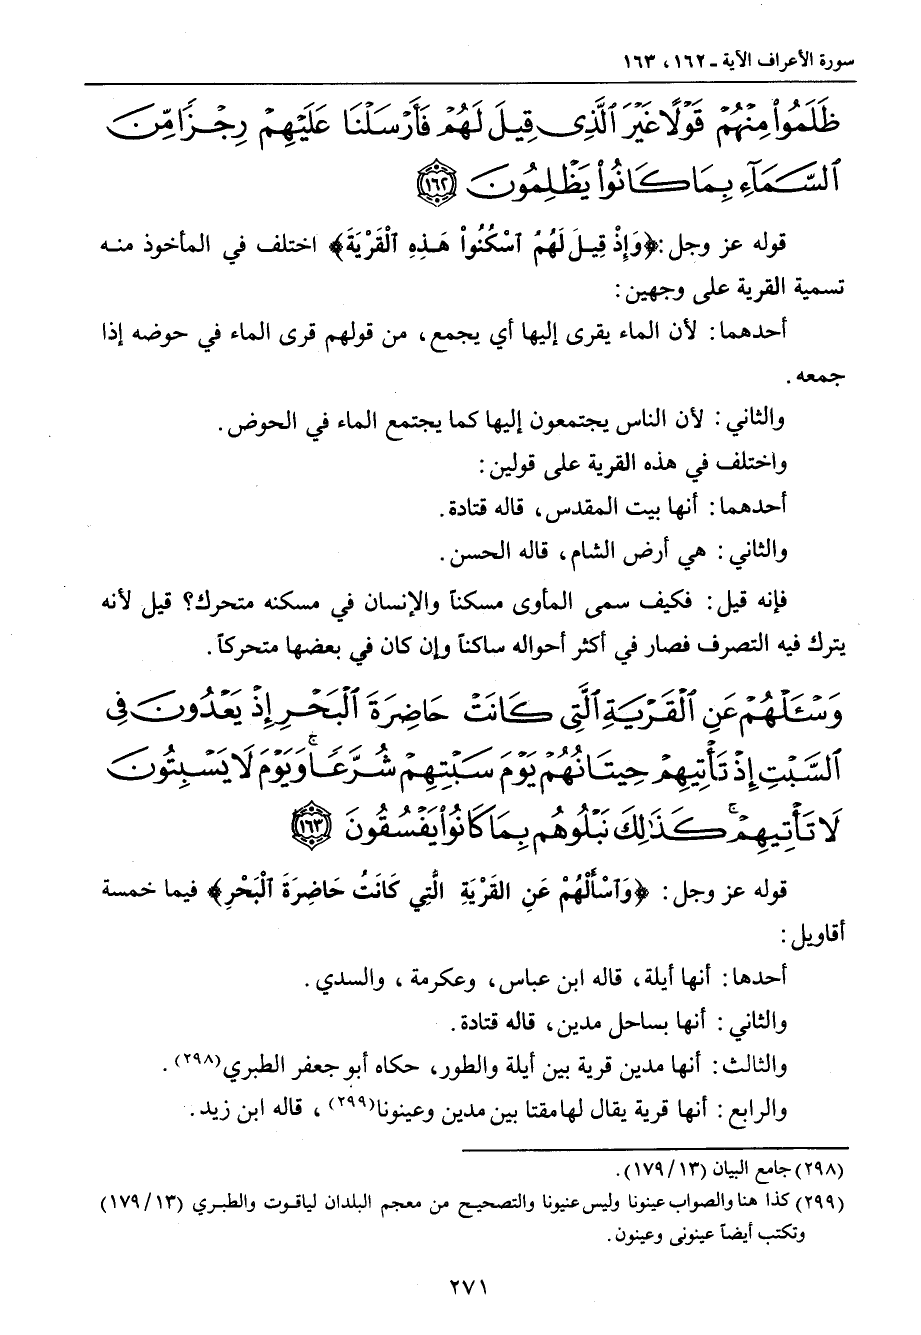 سورة الأعراف الآية ـ ١٦٢ ، ١٦٣
ظَلَمُواْ مِنْهُمْ قَوْلًا غَيْرَ ٱلَّذِى قِيلَ لَهُمْ فَأَرْسَلْنَا عَلَيْهِمْ رِجْزًا مِّنَ
ٱلسَّمَآءِ بِمَا كَانُواْ يَظْلِمُونَ ١٦٢
قوله عز وجل : ﴿وَإِذْ قِيلَ لَهُمُ ٱسْكُنُواْ هَذِهِ ٱلْقَرْيَةَ﴾ اختلف في المأخوذ منه
تسمية القرية على وجهين :
أحدهما : لأن الماء يقرى إليها أي يجمع ، من قولهم قرى الماء في حوضه إذا
جمعه .
والثاني : لأن الناس يجتمعون إليها كما يجتمع الماء في الحوض .
واختلف في هذه القرية على قولين :
أحدهما : أنها بيت المقدس ، قاله قتادة .
والثاني : هي أرض الشام ، قاله الحسن .
فإنه قيل : فكيف سمى المأوى مسكناً والإنسان في مسكنه متحرك؟ قيل لأنه
يترك فيه التصرف فصار في أكثر أحواله ساكناً وإن كان في بعضها متحركاً .
وَسْـَٔلْهُمْ عَنِ ٱلْقَرْيَةِ ٱلَّتِى كَانَتْ حَاضِرَةَ ٱلْبَحْرِ إِذْ يَعْدُونَ فِى
ٱلسَّبْتِ إِذْ تَأْتِيهِمْ حِيتَانُهُمْ يَوْمَ سَبْتِهِمْ شُرَّعًا ۚ وَيَوْمَ لَا يَسْبِتُونَ
لَا تَأْتِيهِمْ ۚ كَذَٰلِكَ نَبْلُوهُم بِمَا كَانُواْ يَفْسُقُونَ ١٦٣
قوله عز وجل : ﴿وَٱسْأَلْهُمْ عَنِ القَرْيَةِ الَّتِي كَانَتْ حَاضِرَةَ ٱلْبَحْرِ﴾ فيما خمسة
أقاويل :
أحدها : أنها أيلة ، قاله ابن عباس ، وعكرمة ، والسدي .
والثاني : أنها بساحل مدين ، قاله قتادة .
والثالث : أنها مدين قرية بين أيلة والطور ، حكاه أبو جعفر الطبري(٢٩٨) .
والرابع : أنها قرية يقال لها مقتا بين مدين وعينونا(٢٩٩) ، قاله ابن زيد .
(٢٩٨) جامع البيان (١٣/ ١٧٩) .
(٢٩٩) كذا هنا والصواب عينونا وليس عنيونا والتصحيح من معجم البلدان لياقوت والطبري (١٣/ ١٧٩)
وتكتب أيضاً عينونى وعينون .
٢٧١